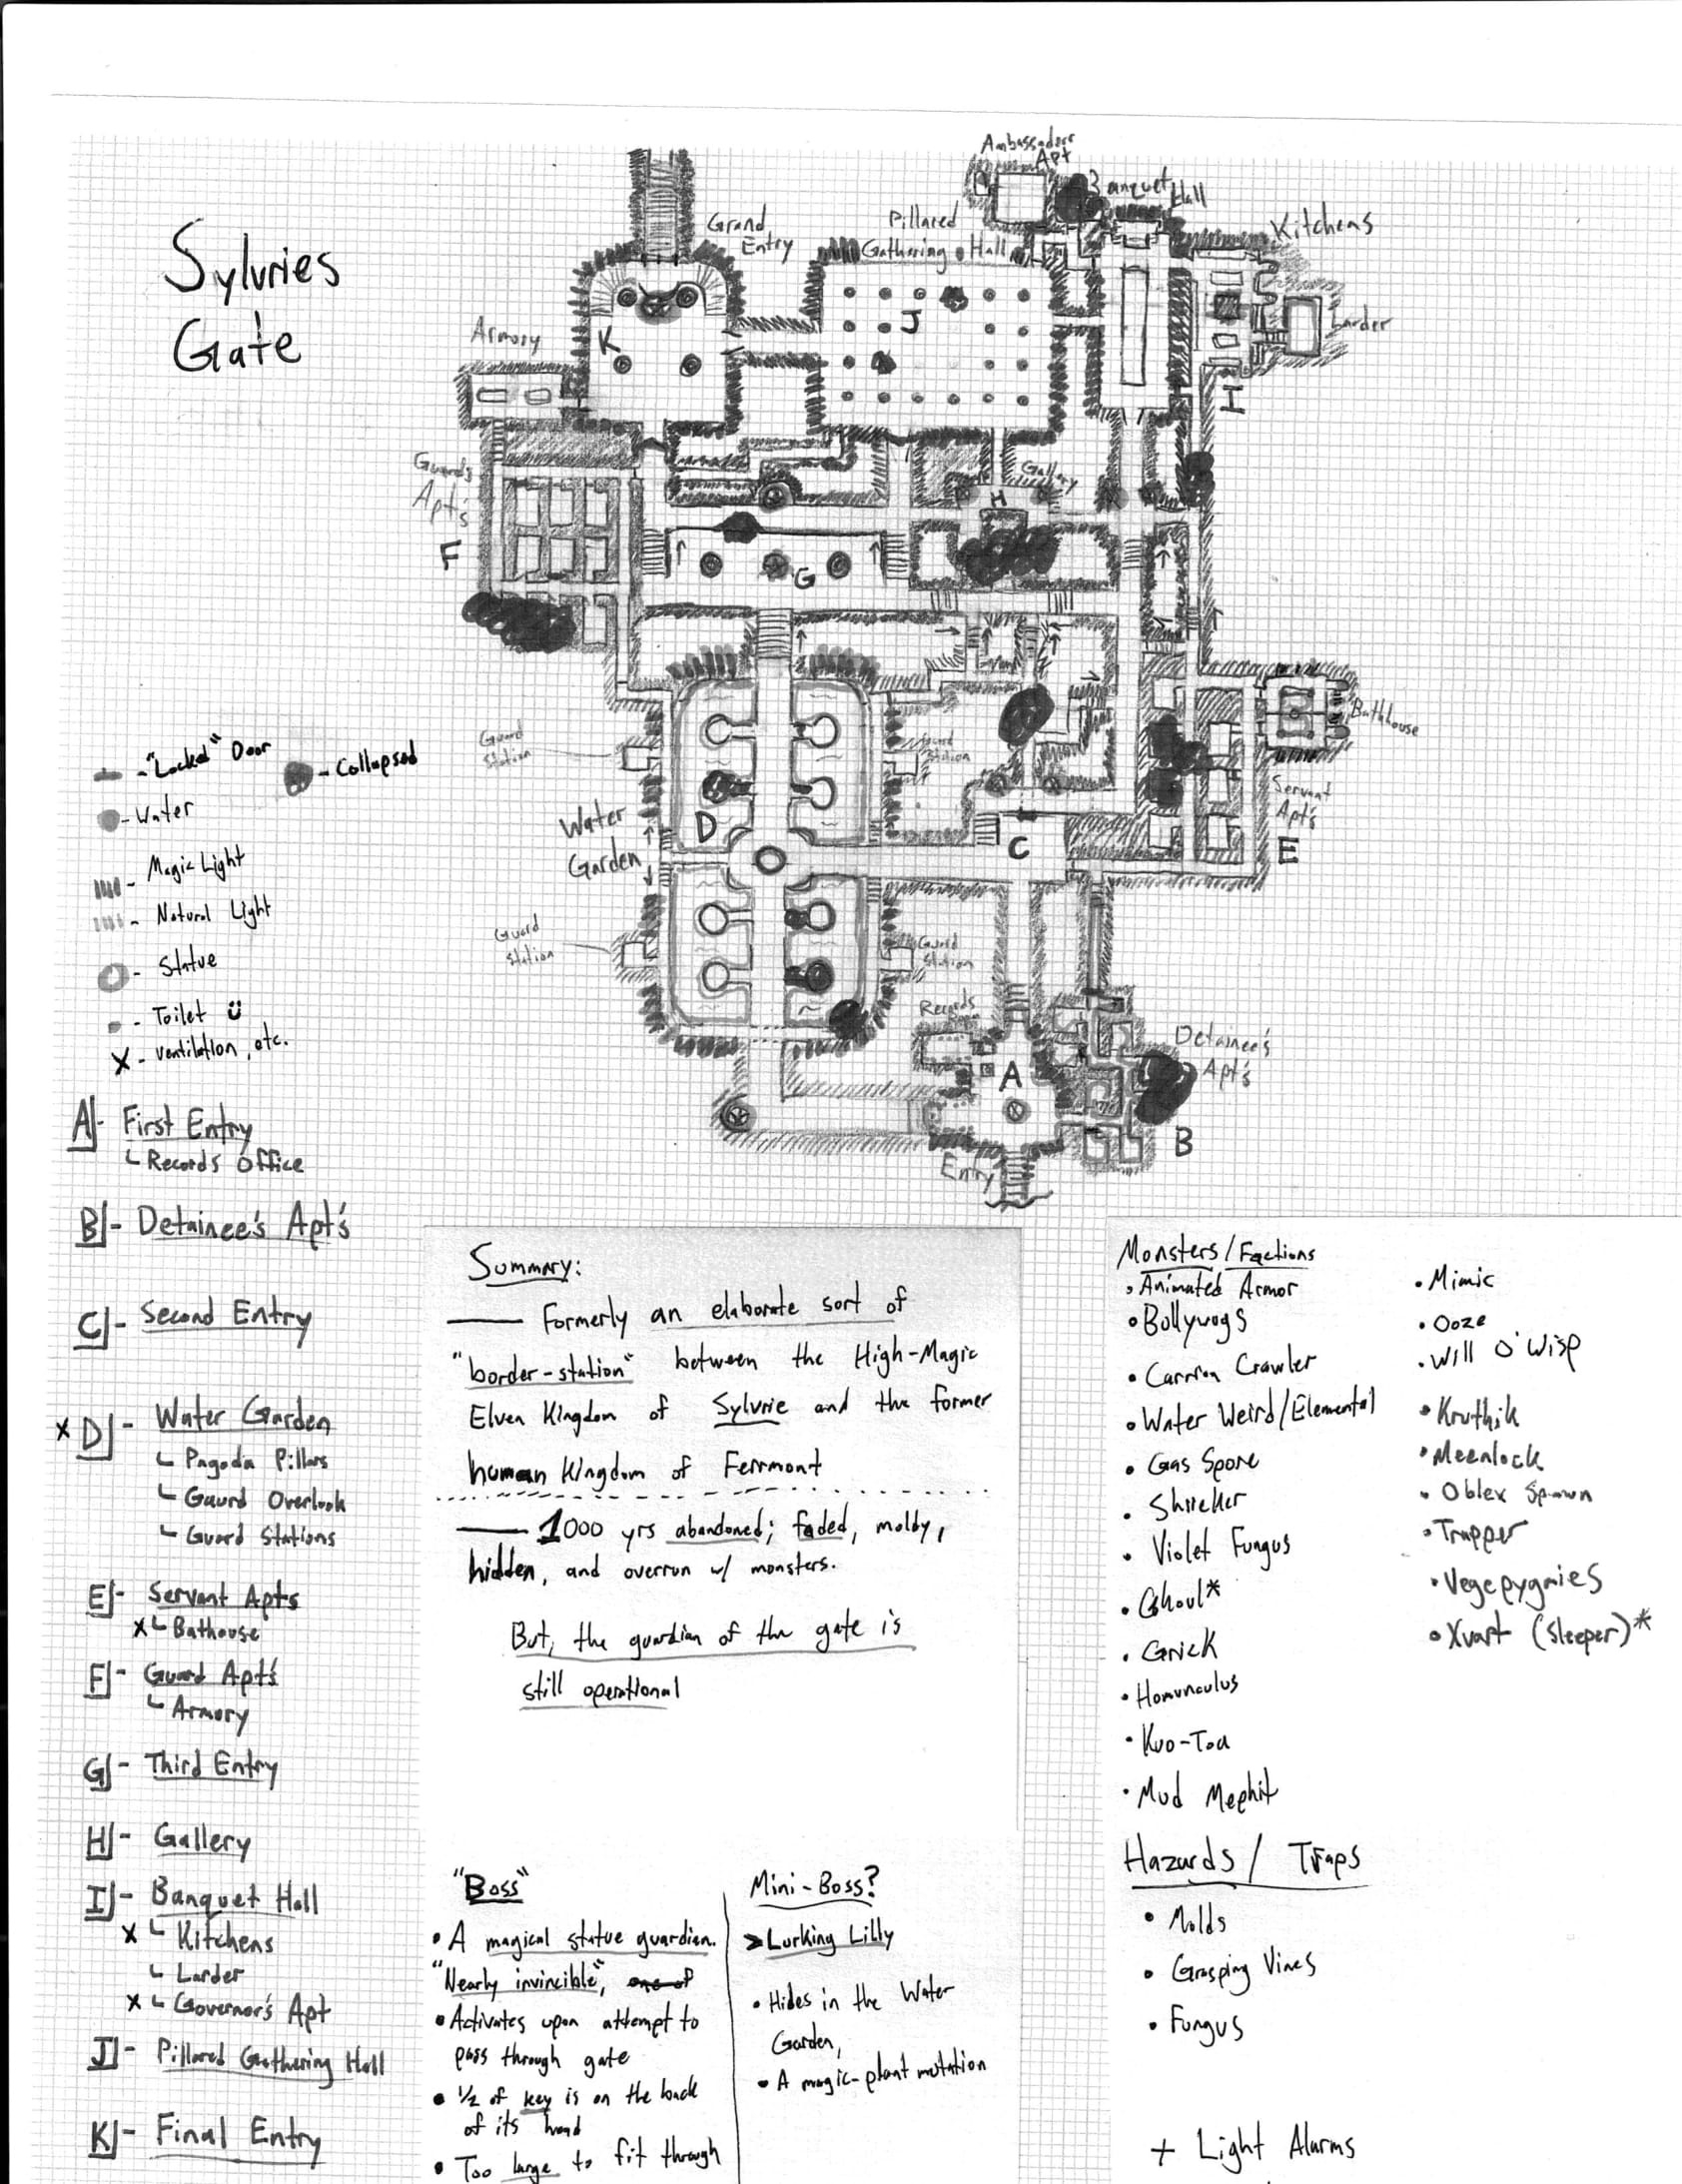 Sylvries
Gate
Ambassadors
Apt
Banquet Hall
Kitchens
Larder
Grand
Entry
Pillared
Gathering Hall
J
K
I
Armory
Guards
Apt's
F
Gallery
H
G
Bathhouse
Servant
Apt's
E
Guard
Station
Guard
Station
Water
Garden
D
C
Guard
Station
Guard
Station
Records
A
Detainee's
Apt's
B
Entry
- "Locked" Door
- Collapsed
- Water
- Magic Light
- Natural Light
- Statue
- Toilet ü
X - Ventilation, etc.
A - First Entry
└ Records Office
B - Detainee's Apt's
C - Second Entry
X D - Water Garden
└ Pagoda Pillars
└ Gaurd Overlook
└ Guard Stations
E - Servant Apts
X └ Bathouse
F - Guard Apt's
└ Armory
G - Third Entry
H - Gallery
I - Banquet Hall
X └ Kitchens
└ Larder
X └ Governor's Apt
J - Pillared Gathering Hall
K - Final Entry
Summary:
— Formerly an elaborate sort of
"border-station" between the High-Magic
Elven Kingdom of Sylvrie and the former
human Kingdom of Ferrmont
— 1000 yrs abandoned; faded, moldy,
hidden, and overrun w/ monsters.
But, the guardian of the gate is
still operational
"Boss"
• A magical statue guardian.
"Nearly invincible", one of
• Activates upon attempt to
pass through gate
• ½ of key is on the back
of its head
• Too large to fit through
Mini-Boss?
> Lurking Lilly
• Hides in the Water
Garden,
• A magic-plant mutation
Monsters/Factions
• Animated Armor
• Bollywogs
• Carrion Crawler
• Water Weird/Elemental
• Gas Spore
• Shrieker
• Violet Fungus
• Ghoul*
• Grick
• Homunculus
• Kuo-Toa
• Mud Mephit
• Mimic
• Ooze
• Will O' Wisp
• Kruthik
• Meenlock
• Oblex Spawn
• Trapper
• Vegepygmies
• Xvart (Sleeper)*
Hazards/ Traps
• Molds
• Grasping Vines
• Fungus
+ Light Alarms